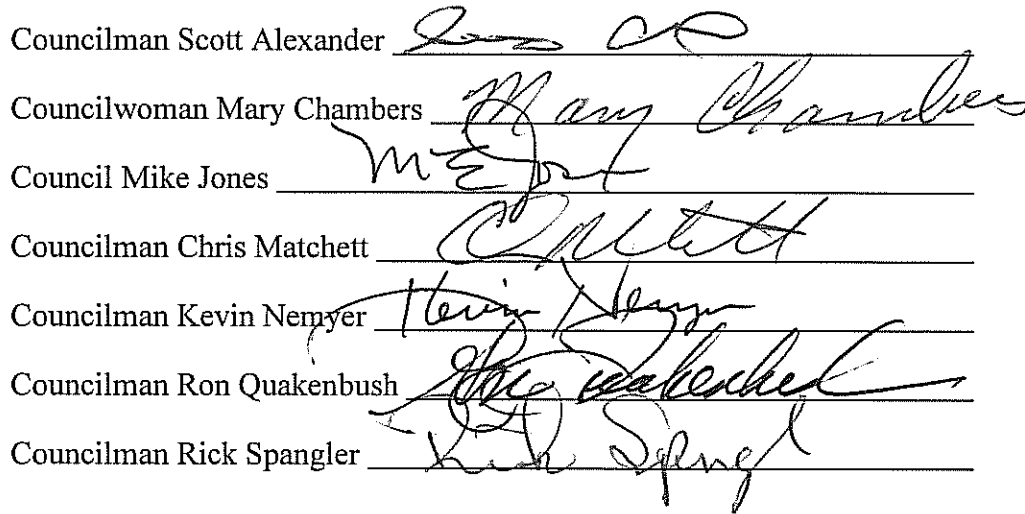 Councilman Scott Alexander
Councilwoman Mary Chambers Mary Chambers
Council Mike Jones M E Jones
Councilman Chris Matchett
Councilman Kevin Nemyer Kevin Nemyer
Councilman Ron Quakenbush Quakenbush
Councilman Rick Spangler Rick Spangl